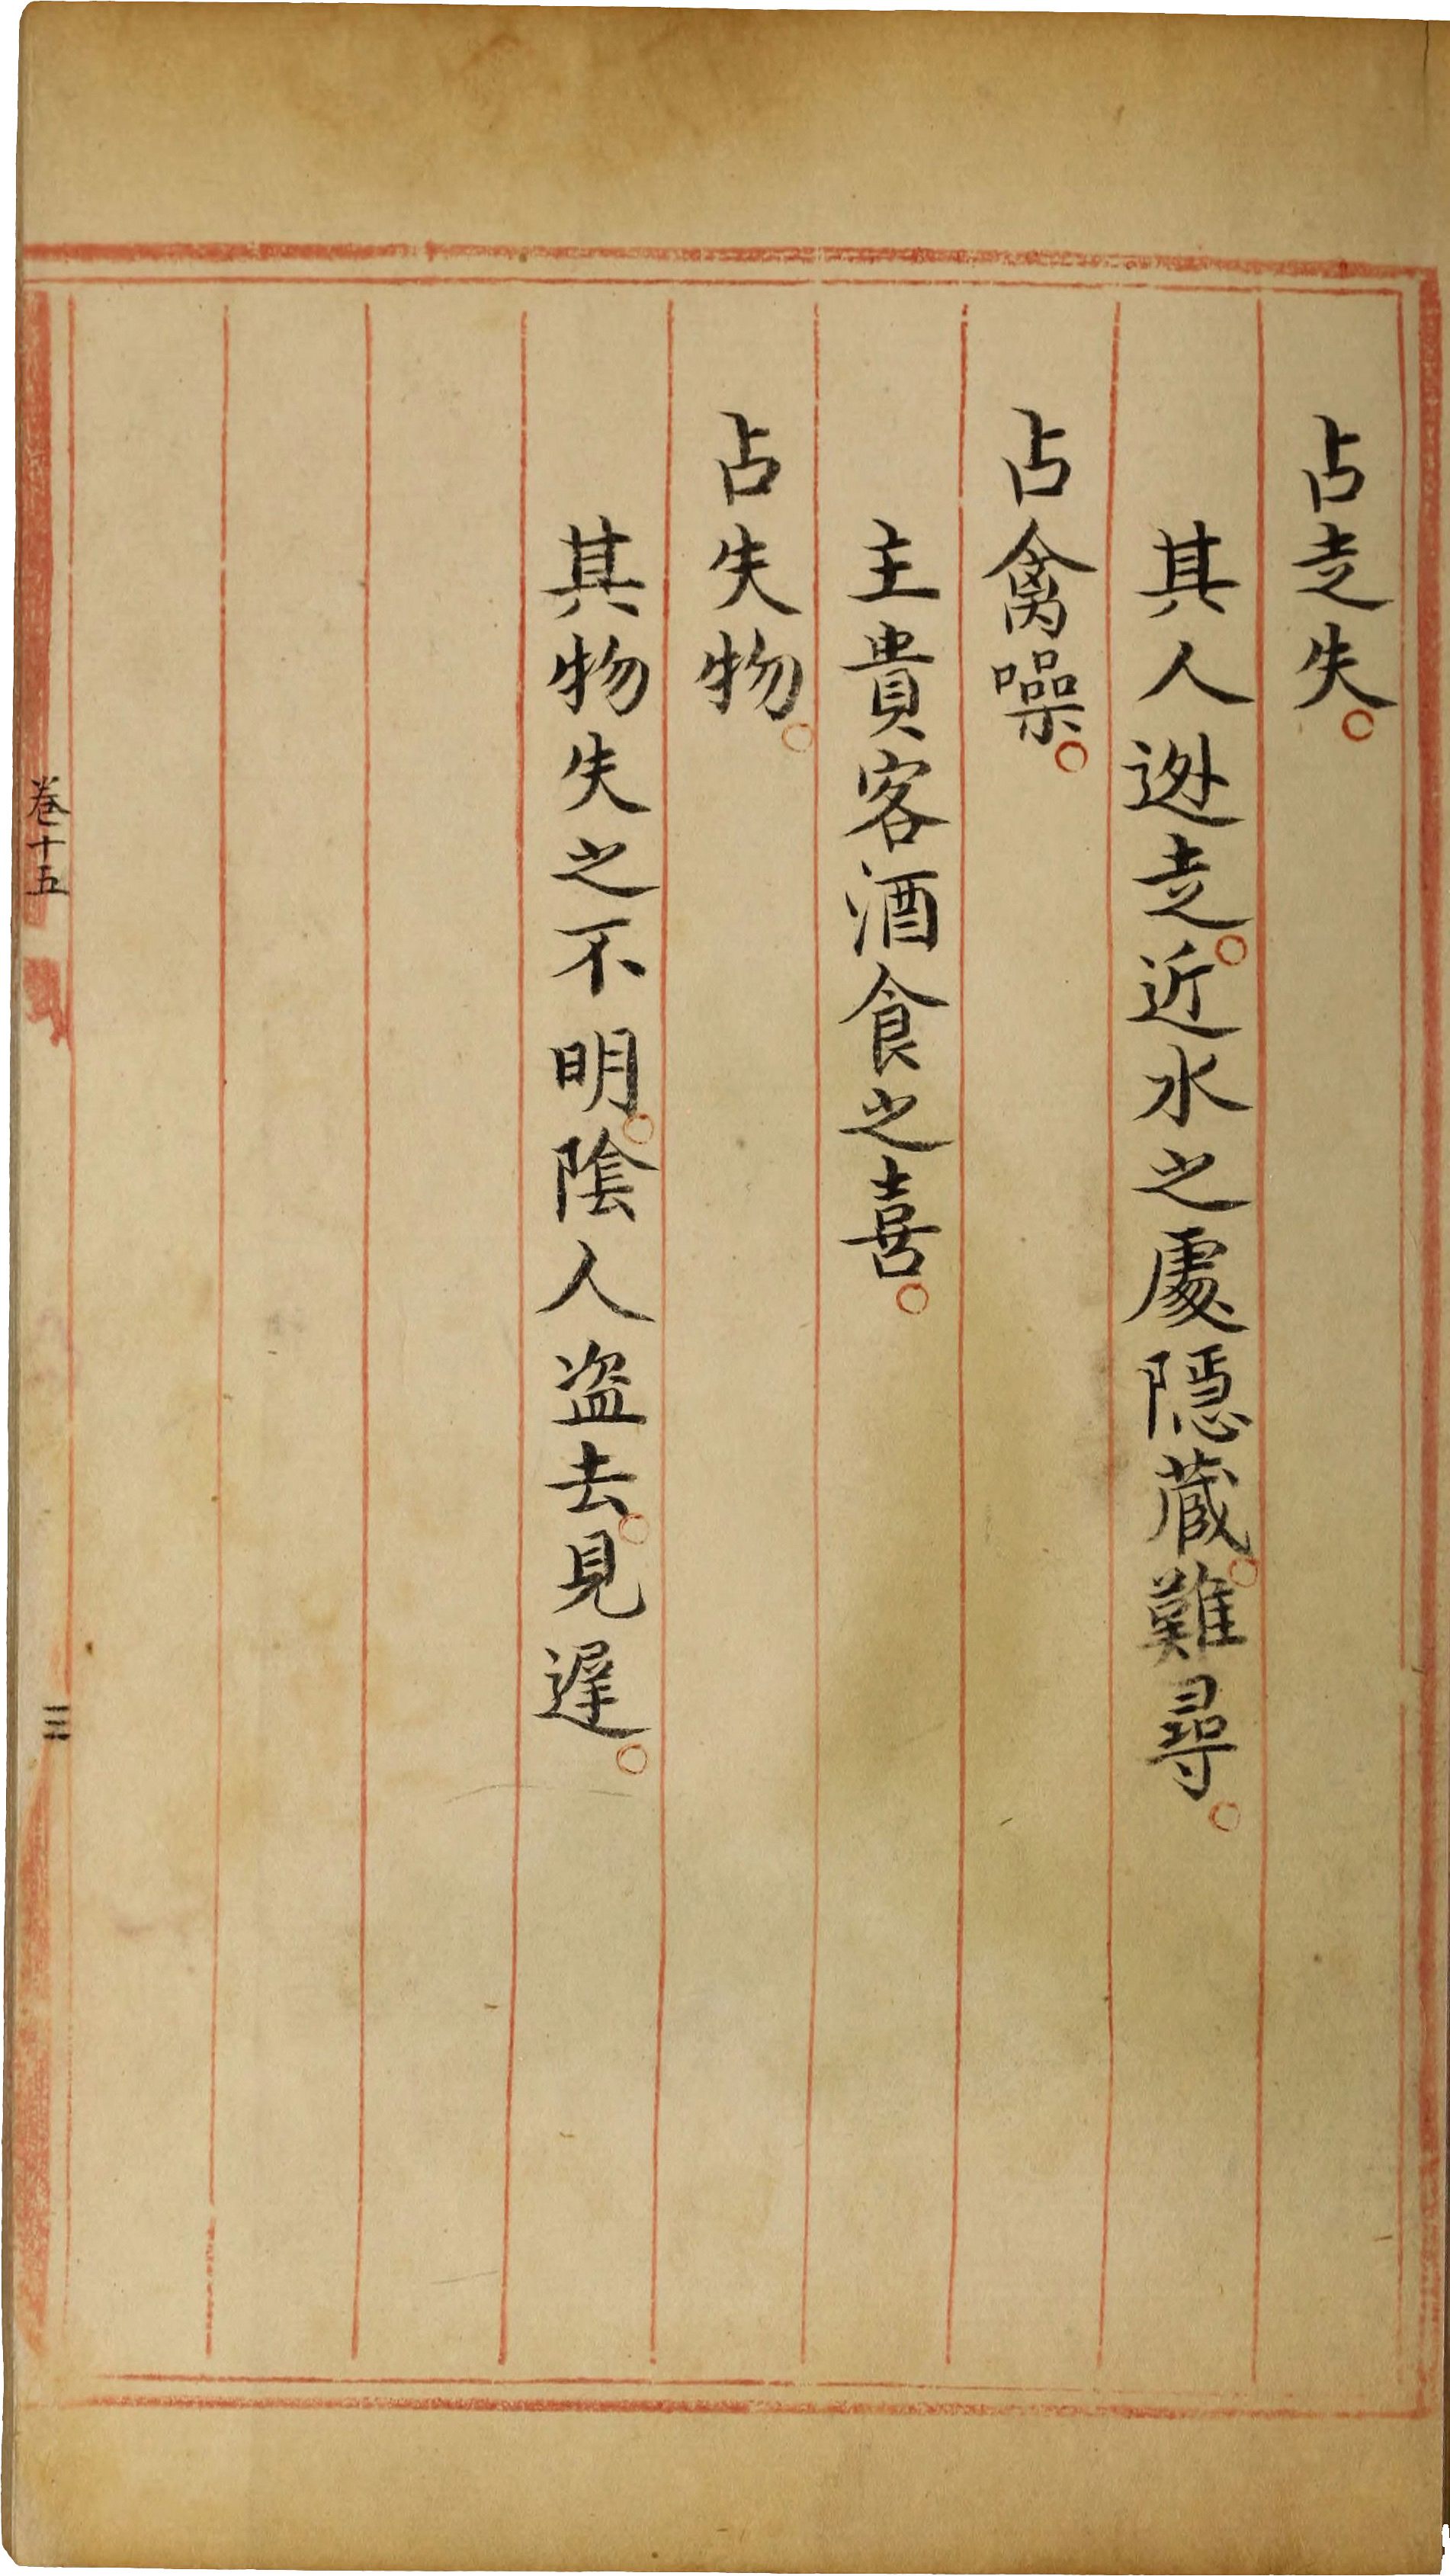 占走失。
其人迯走。近水之處隱藏。難尋。
占禽噪。
主貴客酒食之喜。
占失物。
其物失之不明。陰人盗去。見遲。
卷十五
三